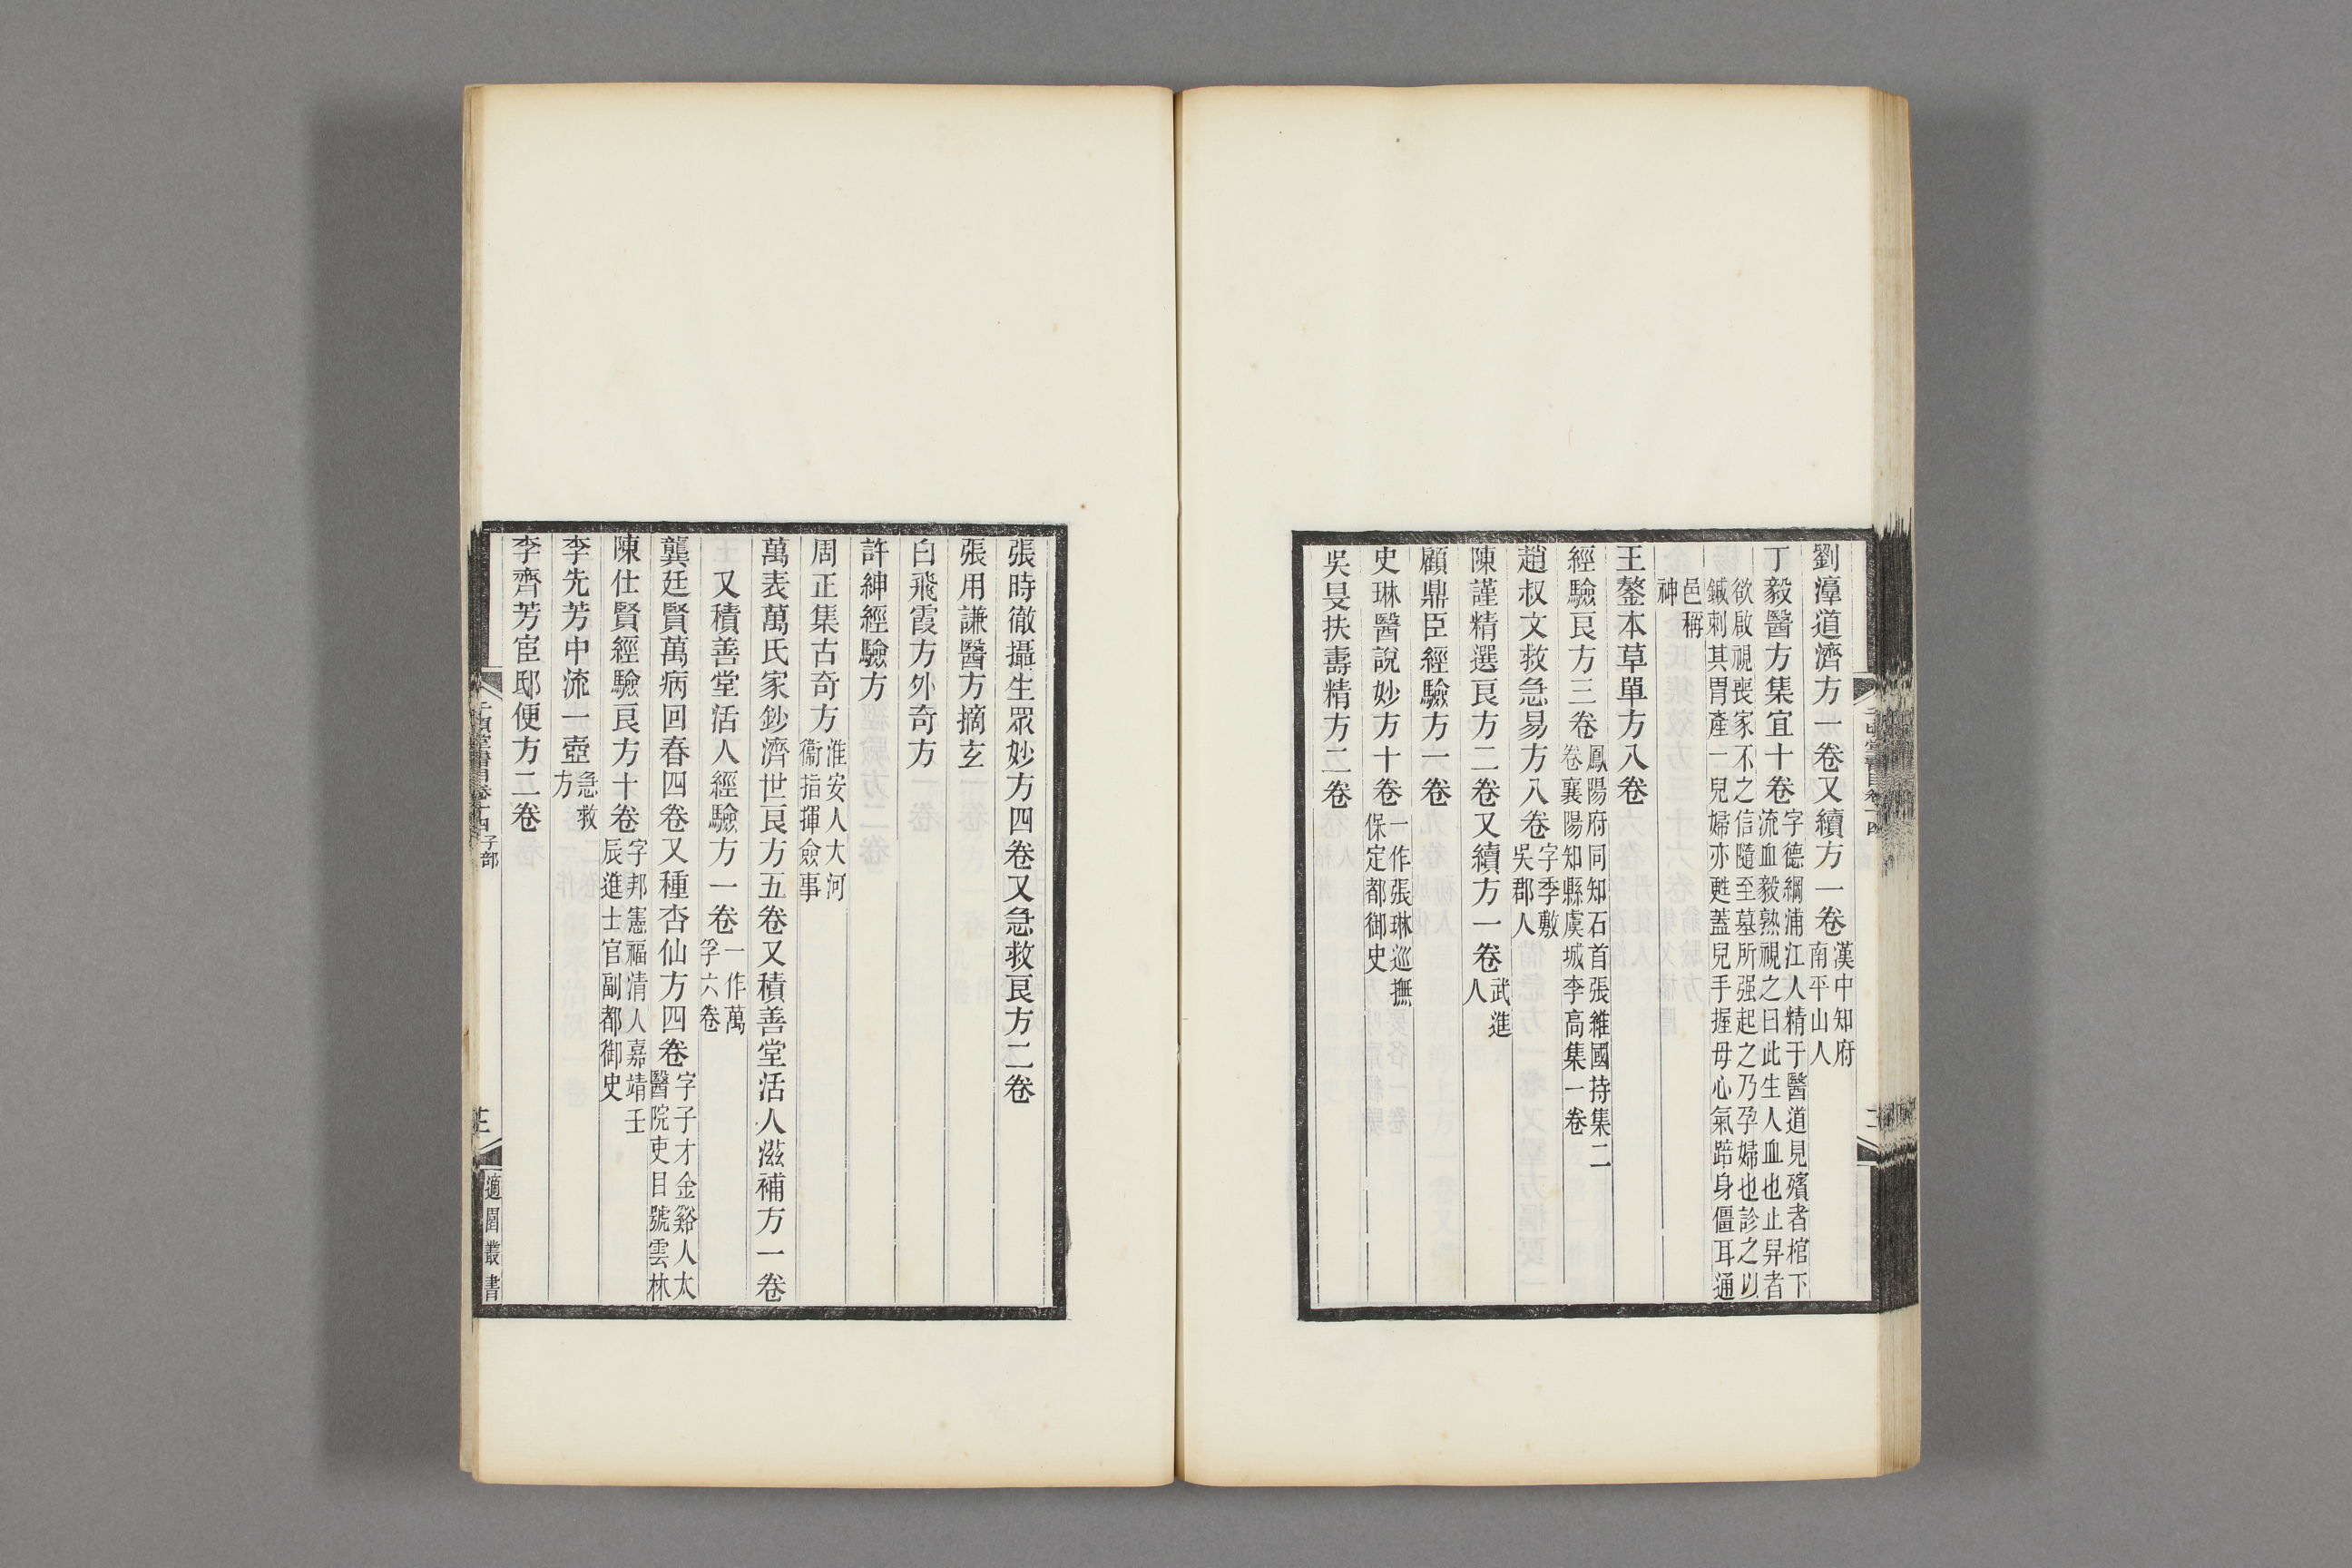 劉漳道濟方一卷又續方一卷漢中知府南平山人
丁毅醫方集宜十卷字德綱浦江人精于醫道見殯者棺下流血毅熟視之曰此生人血也止舁者
欲啟視喪家不之信隨至墓所强起之乃孕婦也診之以鍼刺其胃產一兒婦亦甦蓋兒手握母心氣踣身僵耳通
邑稱神
王鏊本草單方八卷
經驗良方三卷鳳陽府同知石首張維國持集二卷襄陽知縣虞城李高集一卷
趙叔文救急易方八卷字季敷吳郡人
陳謹精選良方二卷又續方一卷武進人
顧鼎臣經驗方一卷
史琳醫說妙方十卷一作張琳巡撫保定都御史
吳旻扶壽精方二卷
張時徹攝生眾妙方四卷又急救良方二卷
張用謙醫方摘玄
白飛霞方外奇方
許紳經驗方
周正集古奇方淮安人大河衞指揮僉事
萬表萬氏家鈔濟世良方五卷又積善堂活人滋補方一卷
又積善堂活人經驗方一卷一作萬孚六卷
龔廷賢萬病回春四卷又種杏仙方四卷字子才金谿人太醫院吏目號雲林
陳仕賢經驗良方十卷字邦憲福清人嘉靖壬辰進士官副都御史
李先芳中流一壺急救方
李齊芳宦邸便方二卷
千頃堂書目卷十四子部
適園叢書